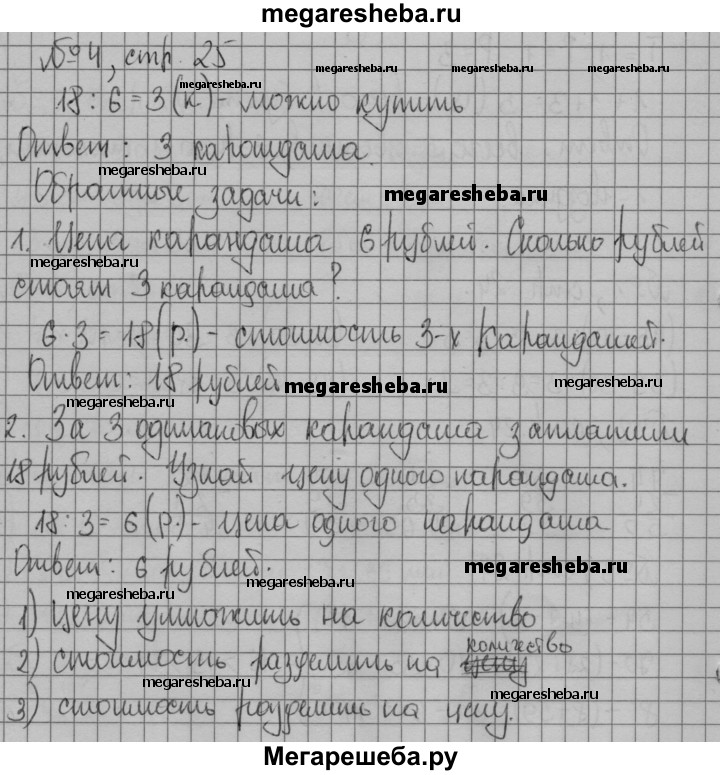 megaresheba.ru
№ 4, стр. 25
megaresheba.ru megaresheba.ru megaresheba.ru
18 : 6 = 3 (к.) - можно купить
Ответ: 3 карандаша.
megaresheba.ru
Обратные задачи: megaresheba.ru
1. Цена карандаша 6 рублей. Сколько рублей
megaresheba.ru megaresheba.ru
стоят 3 карандаша?
6 · 3 = 18 (р.) - стоимость 3-х карандашей.
Ответ: 18 рублей megaresheba.ru megaresheba.ru
megaresheba.ru
2. За 3 одинаковых карандаша заплатили
18 рублей. Узнай цену одного карандаша.
18 : 3 = 6 (р.) - цена одного карандаша
Ответ: 6 рублей. megaresheba.ru
megaresheba.ru megaresheba.ru
1) цену умножить на количество
количество
2) стоимость разделить на цену
megaresheba.ru megaresheba.ru
3) стоимость разделить на цену.
Мегарешеба.ру